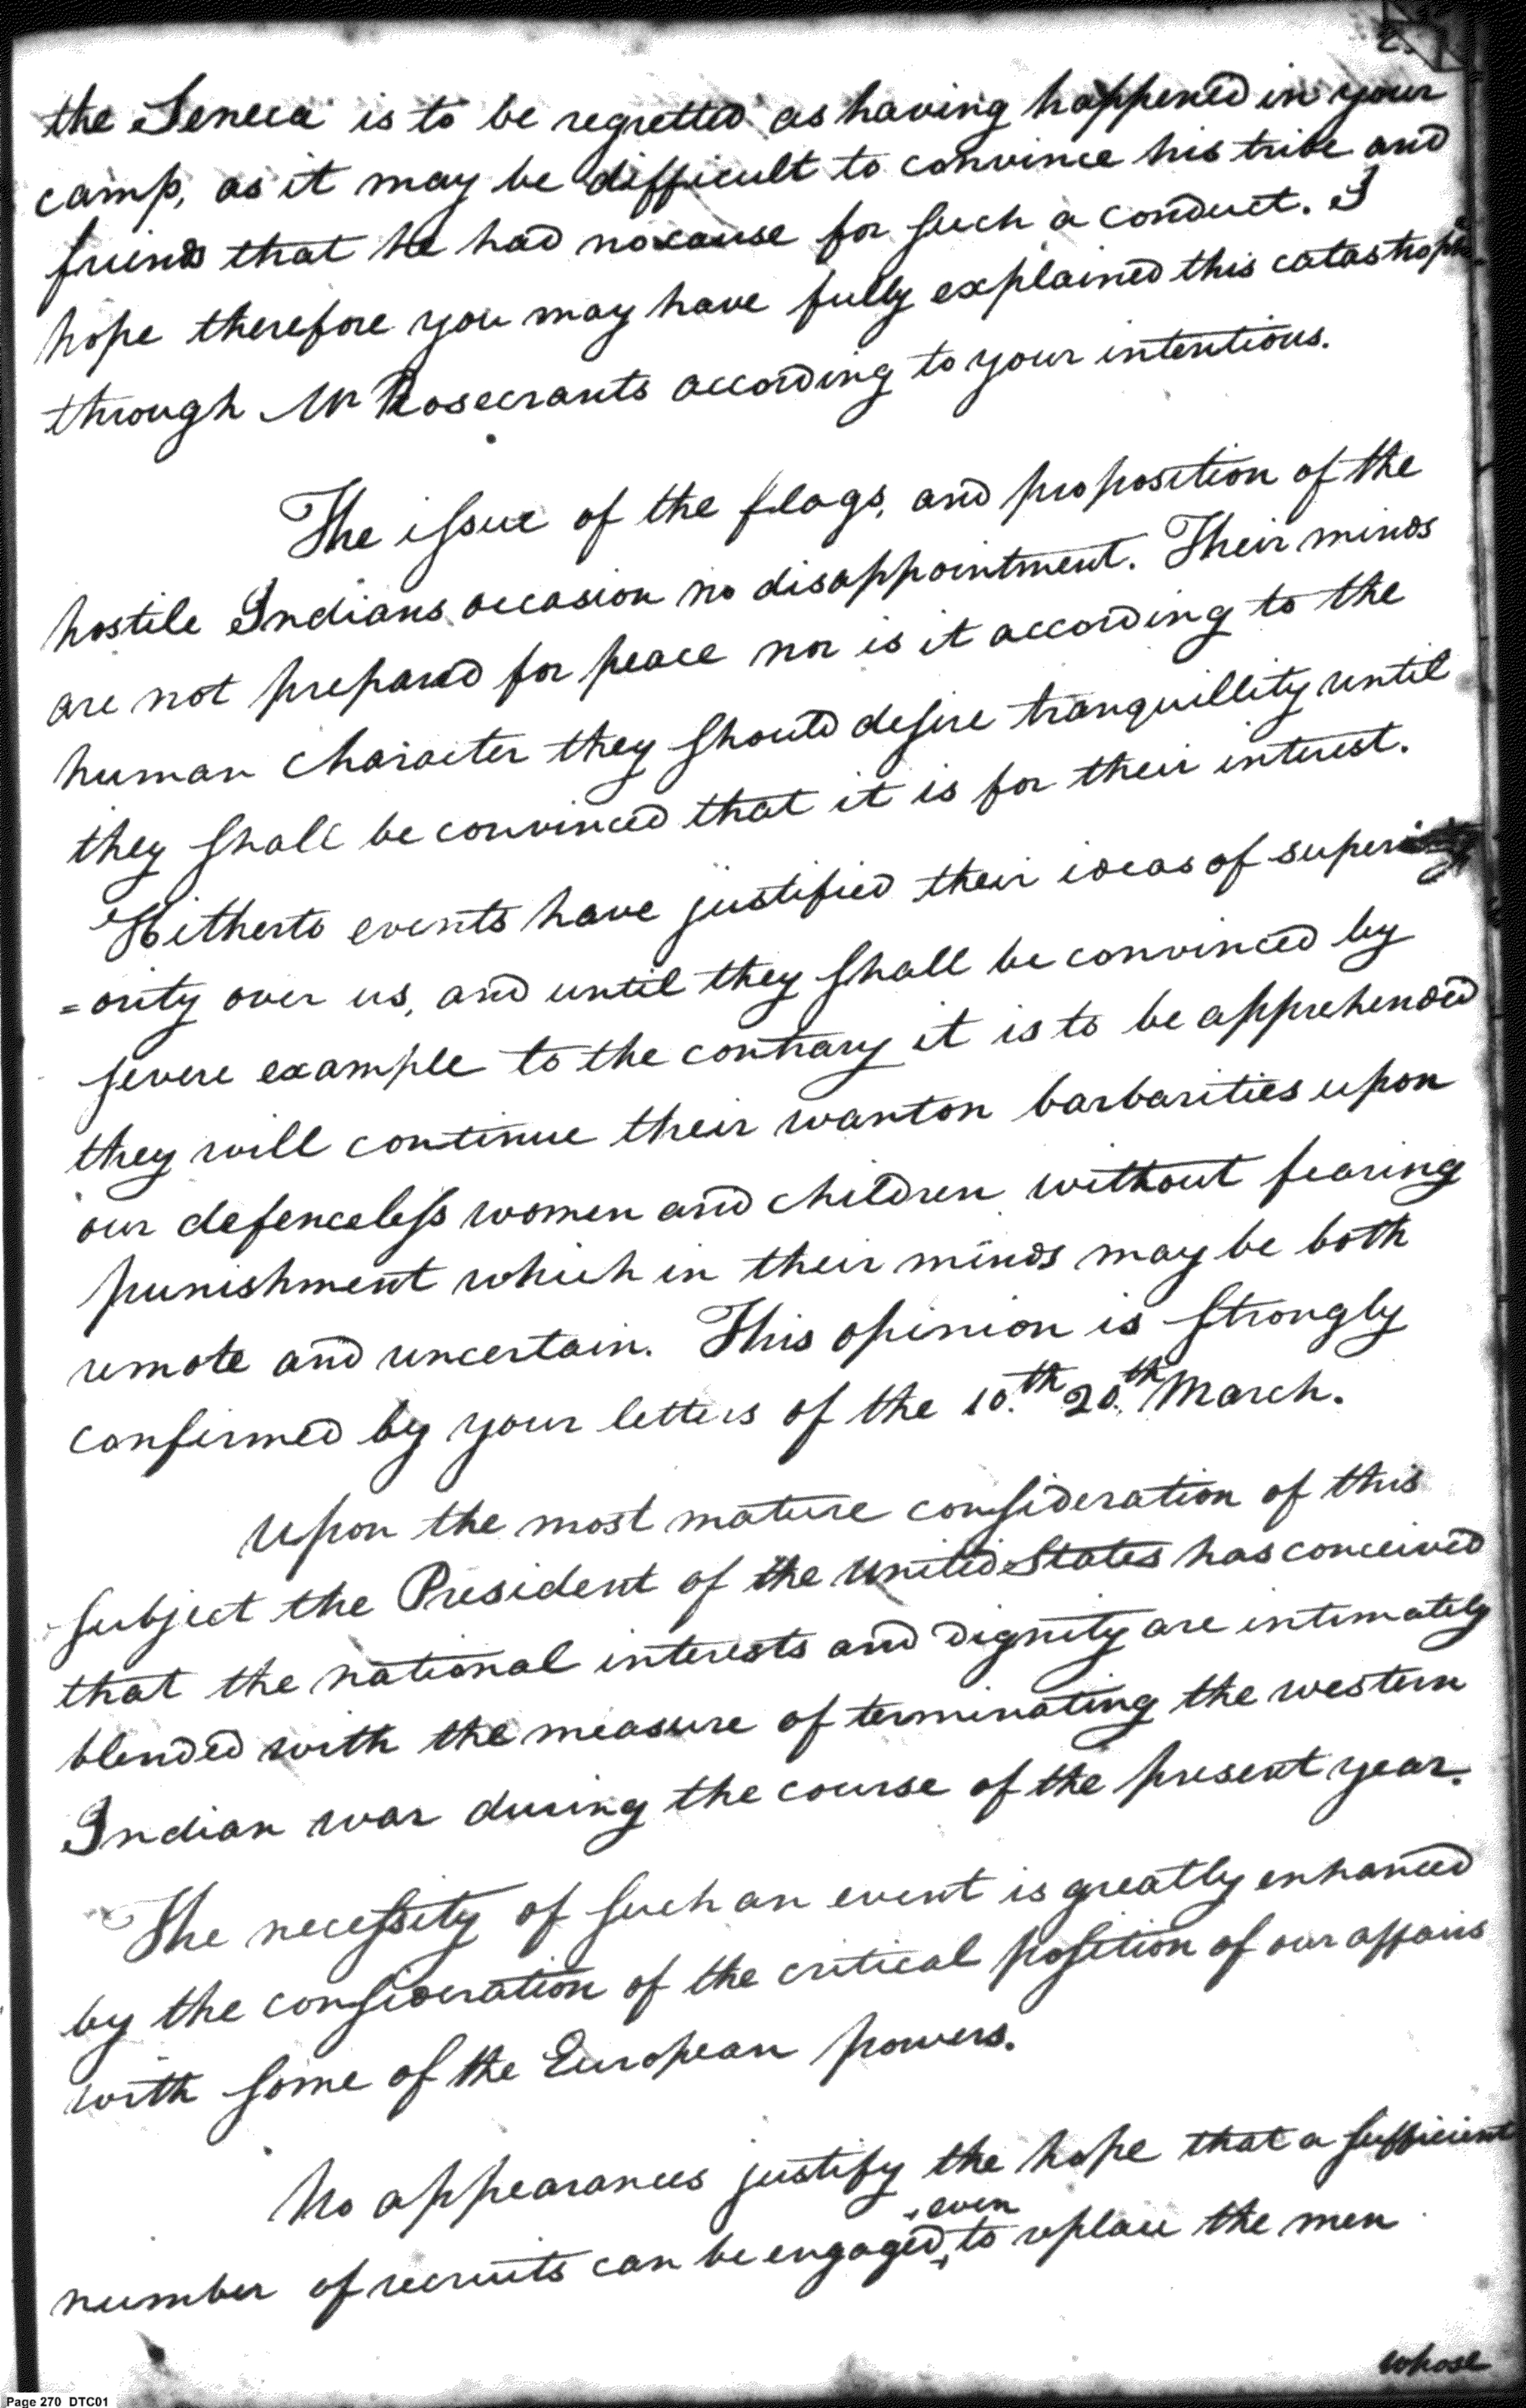 2.
the Seneca is to be regretted as having happened in your
camp, as it may be difficult to convince his tribe and
friends that he had no cause for such a conduct. I
hope therefore you may have fully explained this catastrophe
through Mr Rosecrants according to your intentions.
The issue of the flags, and proposition of the
hostile Indians occasion no disappointment. Their minds
are not prepared for peace nor is it according to the
human character they should desire tranquillity until
they shall be convinced that it is for their interest.
Hitherto events have justified their ideas of superi
=ority over us, and until they shall be convinced by
severe example to the contrary it is to be apprehended
they will continue their wanton barbarities upon
our defenceless women and children without fearing
punishment which in their minds may be both
remote and uncertain. This opinion is strongly
confirmed by your letters of the 10.th 20.th March.
Upon the most mature consideration of this
subject the President of the United States has conceived
that the national interests and dignity are intimately
blended with the measure of terminating the western
Indian war during the course of the present year.
The necessity of such an event is greatly enhanced
by the consideration of the critical position of our affairs
with some of the European powers.
No appearances justify the hope that a sufficient
even
number of recruits can be engaged, to replace the men
whose
Page 270 DTC01